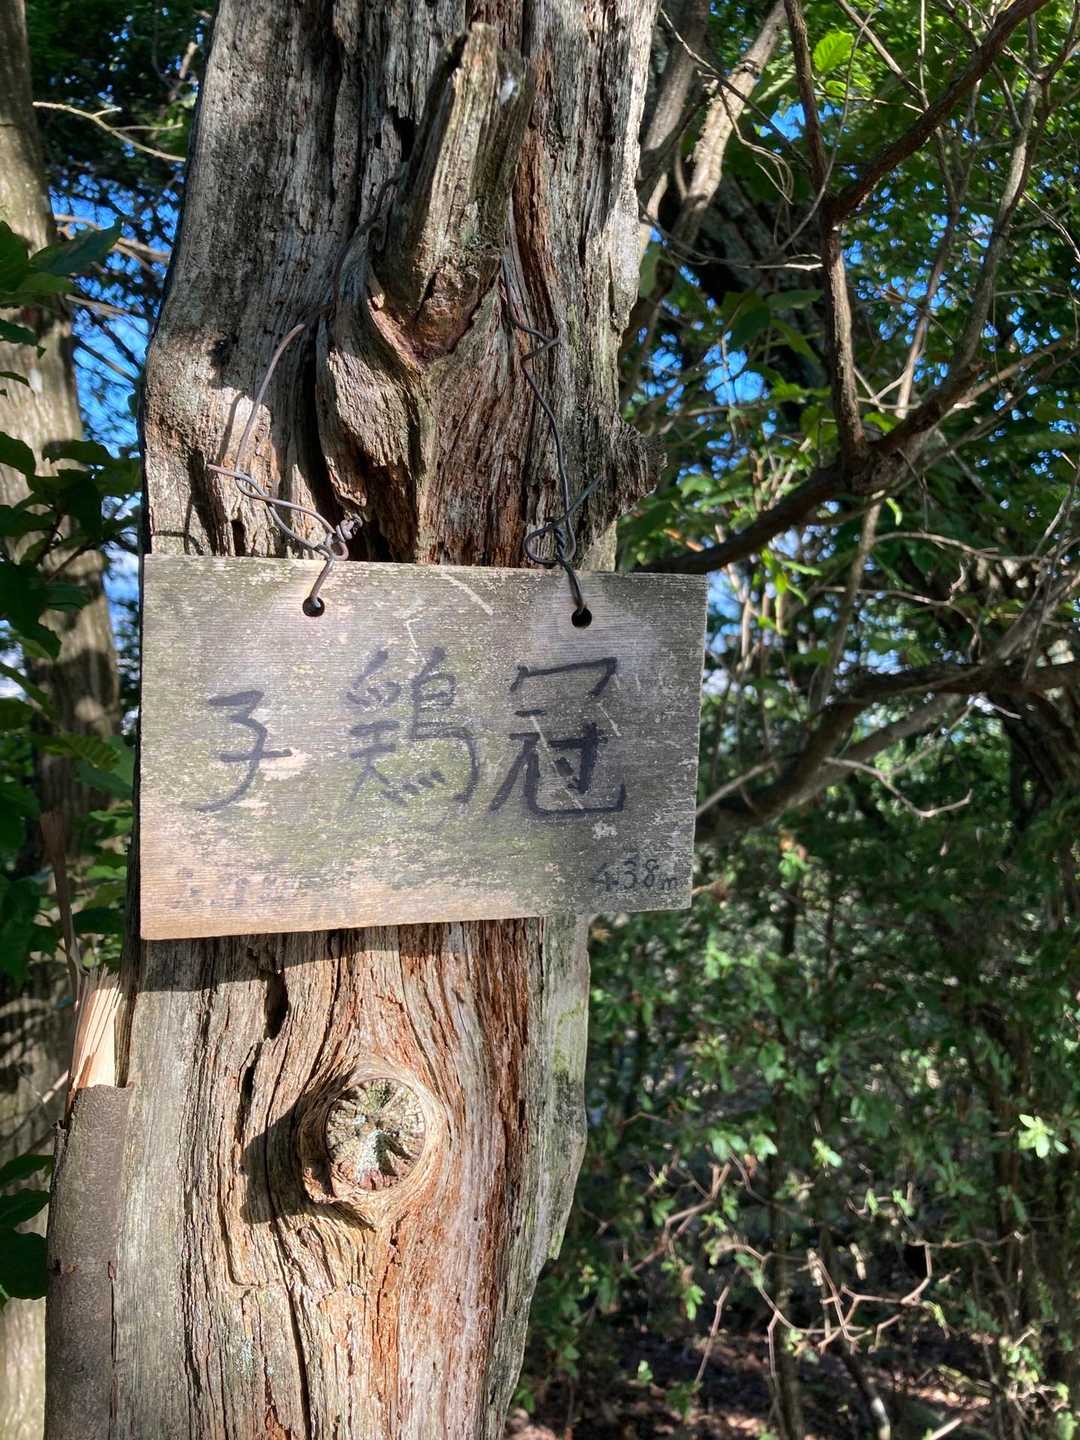 子鶏冠
438m